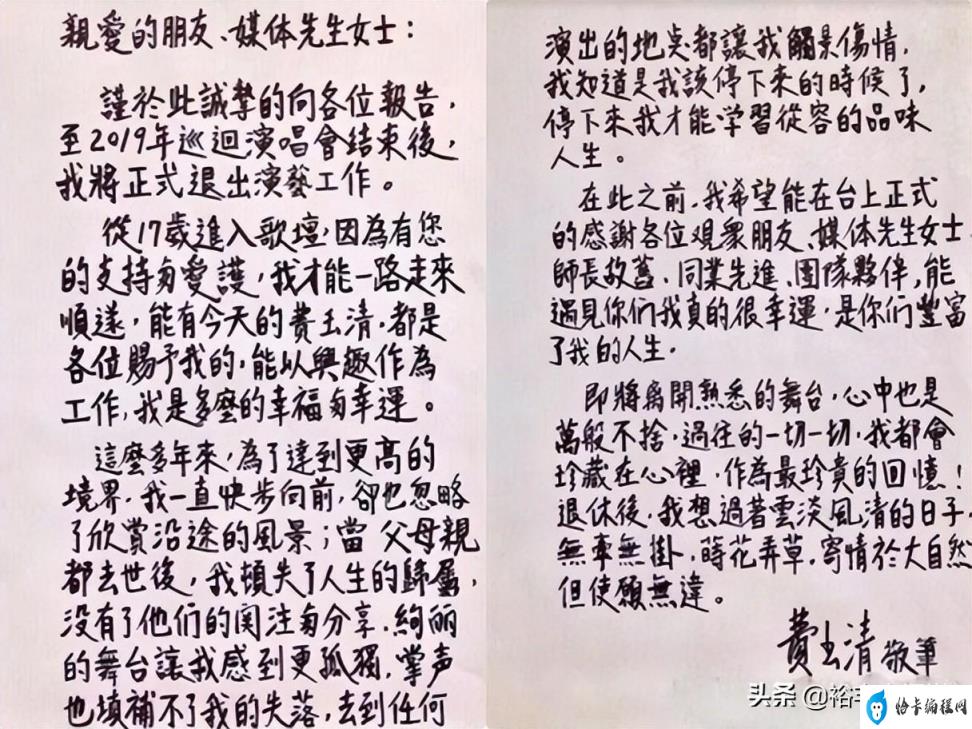 親愛的朋友、媒体先生女士：
謹於此誠摯的向各位報告，
至2019年巡迴演唱會结束後，
我將正式退出演藝工作。
從17歲進入歌壇，因為有您
的支持与愛護，我才能一路走來
順遂，能有今天的費玉清，都是
各位賜予我的，能以興趣作為
工作，我是多麼的幸福与幸運。
這麼多年來，為了達到更高的
境界，我一直快步向前，卻也忽略
了欣賞沿途的風景；當父母親
都去世後，我頓失了人生的歸屬，
没有了他們的関注与分享，絢丽
的舞台讓我感到更孤獨，掌声
也填補不了我的失落，去到任何
演出的地点都讓我觸景傷情，
我知道是我該停下來的時候了，
停下來我才能学習從容的品味
人生。
在此之前，我希望能在台上正式
的感謝各位观衆朋友、媒体先生女士、
師長故舊、同業先進、团隊夥伴，能
遇見你们我真的很幸運，是你们豐富
了我的人生。
即將离開熟悉的舞台，心中也是
萬般不捨，過往的一切一切，我都會
珍藏在心裡，作為最珍貴的回憶！
退休後，我想過著雲淡風清的日子，
無牽無掛，蒔花弄草，寄情於大自然
但使願無違。
費玉清 敬筆
头条 @裕丰
恰卡编程网